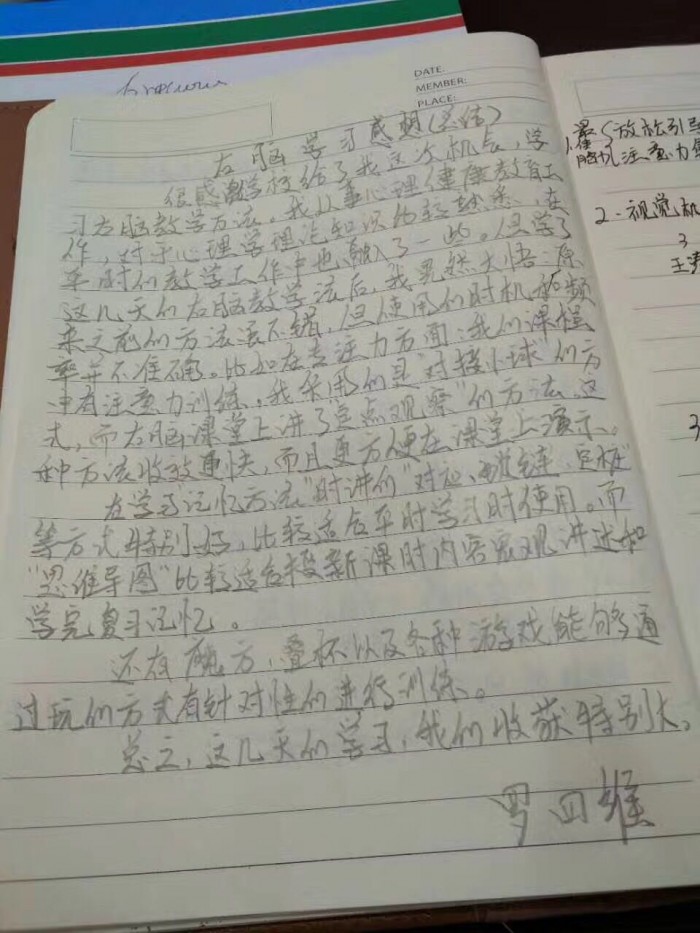 DATE:
MEMBER:
PLACE:
右脑学习感想(总结)
很感谢学校给了我这次机会,学
习右脑教学方法。我从事心理健康教育工
作,对于心理学理论知识比较熟悉,在
平时的教学工作中也融入了一些。但学了
这几天的右脑教学法后,我晃然大悟:原
来之前的方法该不错,但使用的时机和频
率并不准确。比如在专注力方面:我们课程
中有注意力训练,我采用的是"对接小球"的方
式,而右脑课堂上讲了"定点观察"的方法。这
种方法收效更快,而且更方便在课堂上演示。
在学习记忆方法"时讲的"对应、链、定桩"
等方式特别好,比较适合平时学习时使用。而
"思维导图"比较适合授新课时内容宏观讲述和
学完复习记忆。
还有魔方,叠杯以及各种游戏能够通
过玩的方式有针对性的进行训练。
总之,这几天的学习,我们收获特别大。
罗四维
1.
放松引导
注意力
2.视觉机
3
王
3